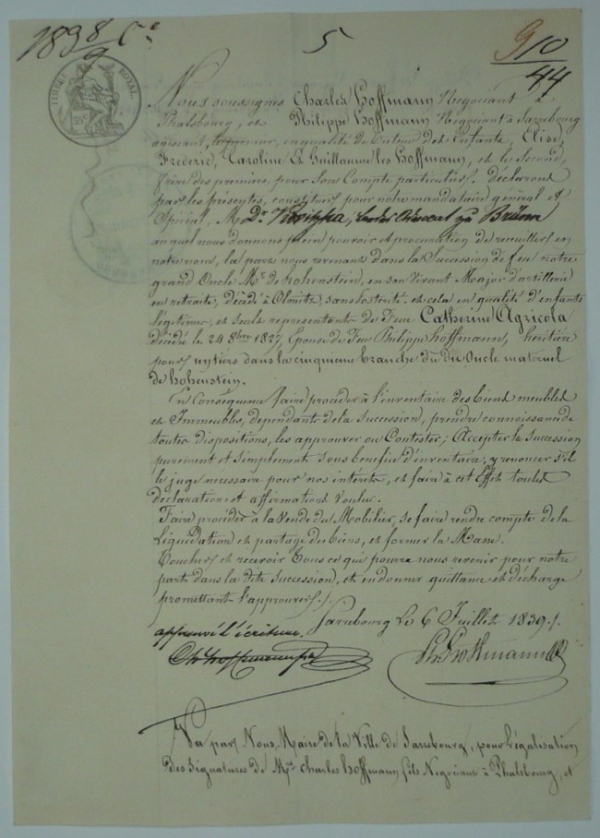 1838/9 Ce
5
910/44
TIMBRE ROYAL
35 c
Nous soussignés Charles Hoffmann Négociant à
Phalsbourg, et Philippe Hoffmann Négociant à Sarrebourg
agissant, le premier, en qualité de Tuteur des Enfants, Elise,
Fréderic, Caroline Et Guillaume les Hoffmann, et le Second,
frère des premiers, pour son Compte particulier. déclarons
par les présentes, constituer pour notre mandataire général et
Spécial, M. Dr. zu Brünn
auquel nous donnons plein pouvoir et procuration de recueillir en
notre nom, la part nous revenant dans la Succession de feu notre
grand Oncle Mr. de hohenstein, en son vivant Major d'artillerie
en retraite, décédé à Olmütz, sans postérité. et cela en qualité d'enfants
légitimes, et seuls représentants de Feue Catherine Agricola
décédée le 24 8bre 1827, Epouse de Feu Philippe Hoffmann, héritière
pour un tiers dans la cinquième branche du dit Oncle maternel
de hohenstein.
En Conséquence faire procéder à l'inventaire des biens meubles
et Immeubles, dépendants de la Succession, prendre connaissance de
toutes dispositions, les approuver ou Contester; Accepter la Succession
purement et simplement ou sous bénéfice d'inventaire, y renoncer s'il
le juge nécessaire pour nos intérêts, et faire à cet Effet toutes
déclarations et affirmations voulues.
Faire procéder à la Vente du Mobilier, se faire rendre compte de la
Liquidation et partage des biens, et former la Masse.
Toucher et recevoir Tous ce qui pourra nous revenir pour notre
part dans la dite Succession, et en donner quittance et décharge
promettant l'approuver ./.
Sarrebourg Le 6 Juillet 1839 ./.
approuvé l'écriture.
Ch Hoffmann fils
Ph Hoffmann
Vu par Nous, Maire de la Ville de Sarrebourg, pour légalisation
des Signatures de Mrs Charles Hoffmann fils Négociant à Phalsbourg, et